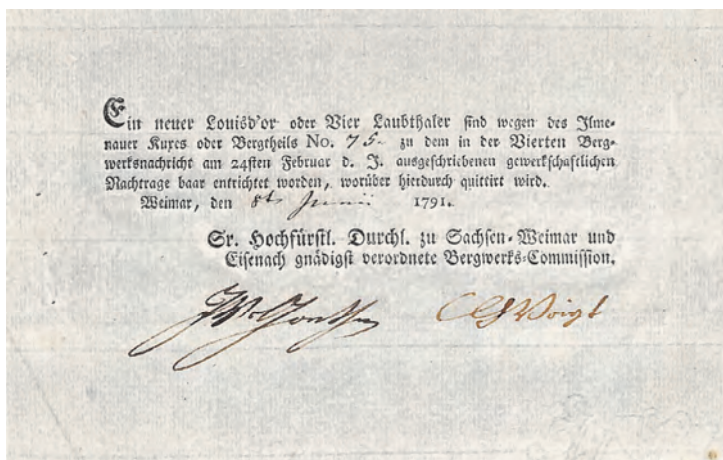 Ein neuer Louisd'or oder Vier Laubthaler sind wegen des Ilme-
nauer Kuxes oder Bergtheils No. 75. zu dem in der Vierten Berg-
werksnachricht am 24sten Februar d. J. ausgeschriebenen gewerkschaftlichen
Nachtrage baar entrichtet worden, worüber hierdurch quittirt wird.
Weimar, den 8t Junii 1791.
Sr. Hochfürstl. Durchl. zu Sachsen-Weimar und
Eisenach gnädigst verordnete Bergwerks-Commission.
JWGoethe CGVoigt